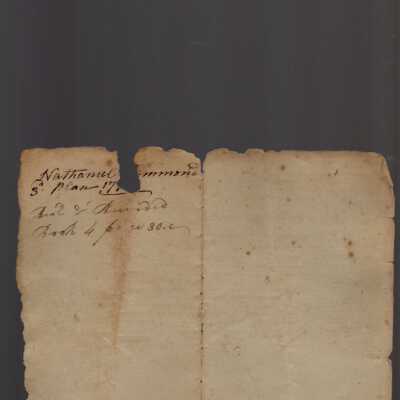 Nathaniel mmond
3d Plan 17
Recd & Recorded
Book 4 page 30